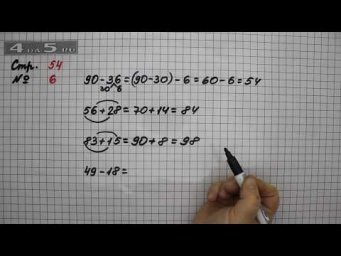 Стр. 54
№ 6
90-36=(90-30)-6=60-6=54
30 6
56+28=70+14=84
83+15=90+8=98
49-18=